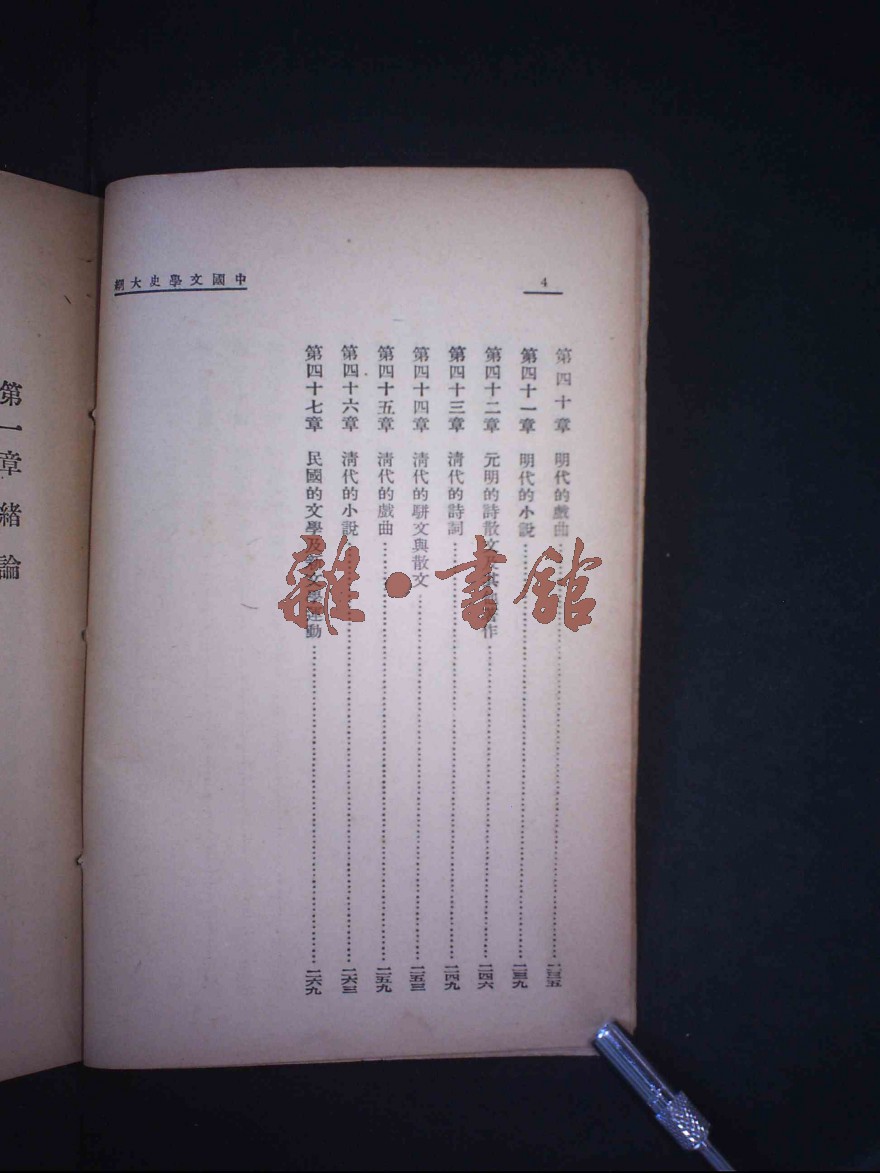 中國文學史大綱
4
第四十章 明代的戲曲……二三五
第四十一章 明代的小說……二三九
第四十二章 元明的詩散文及其他著作……二四六
第四十三章 清代的詩詞……二四九
第四十四章 清代的駢文與散文……二五三
第四十五章 清代的戲曲……二五九
第四十六章 清代的小說……二六三
第四十七章 民國的文學及新文學運動……二六九
第一章 緒論
雜·書館